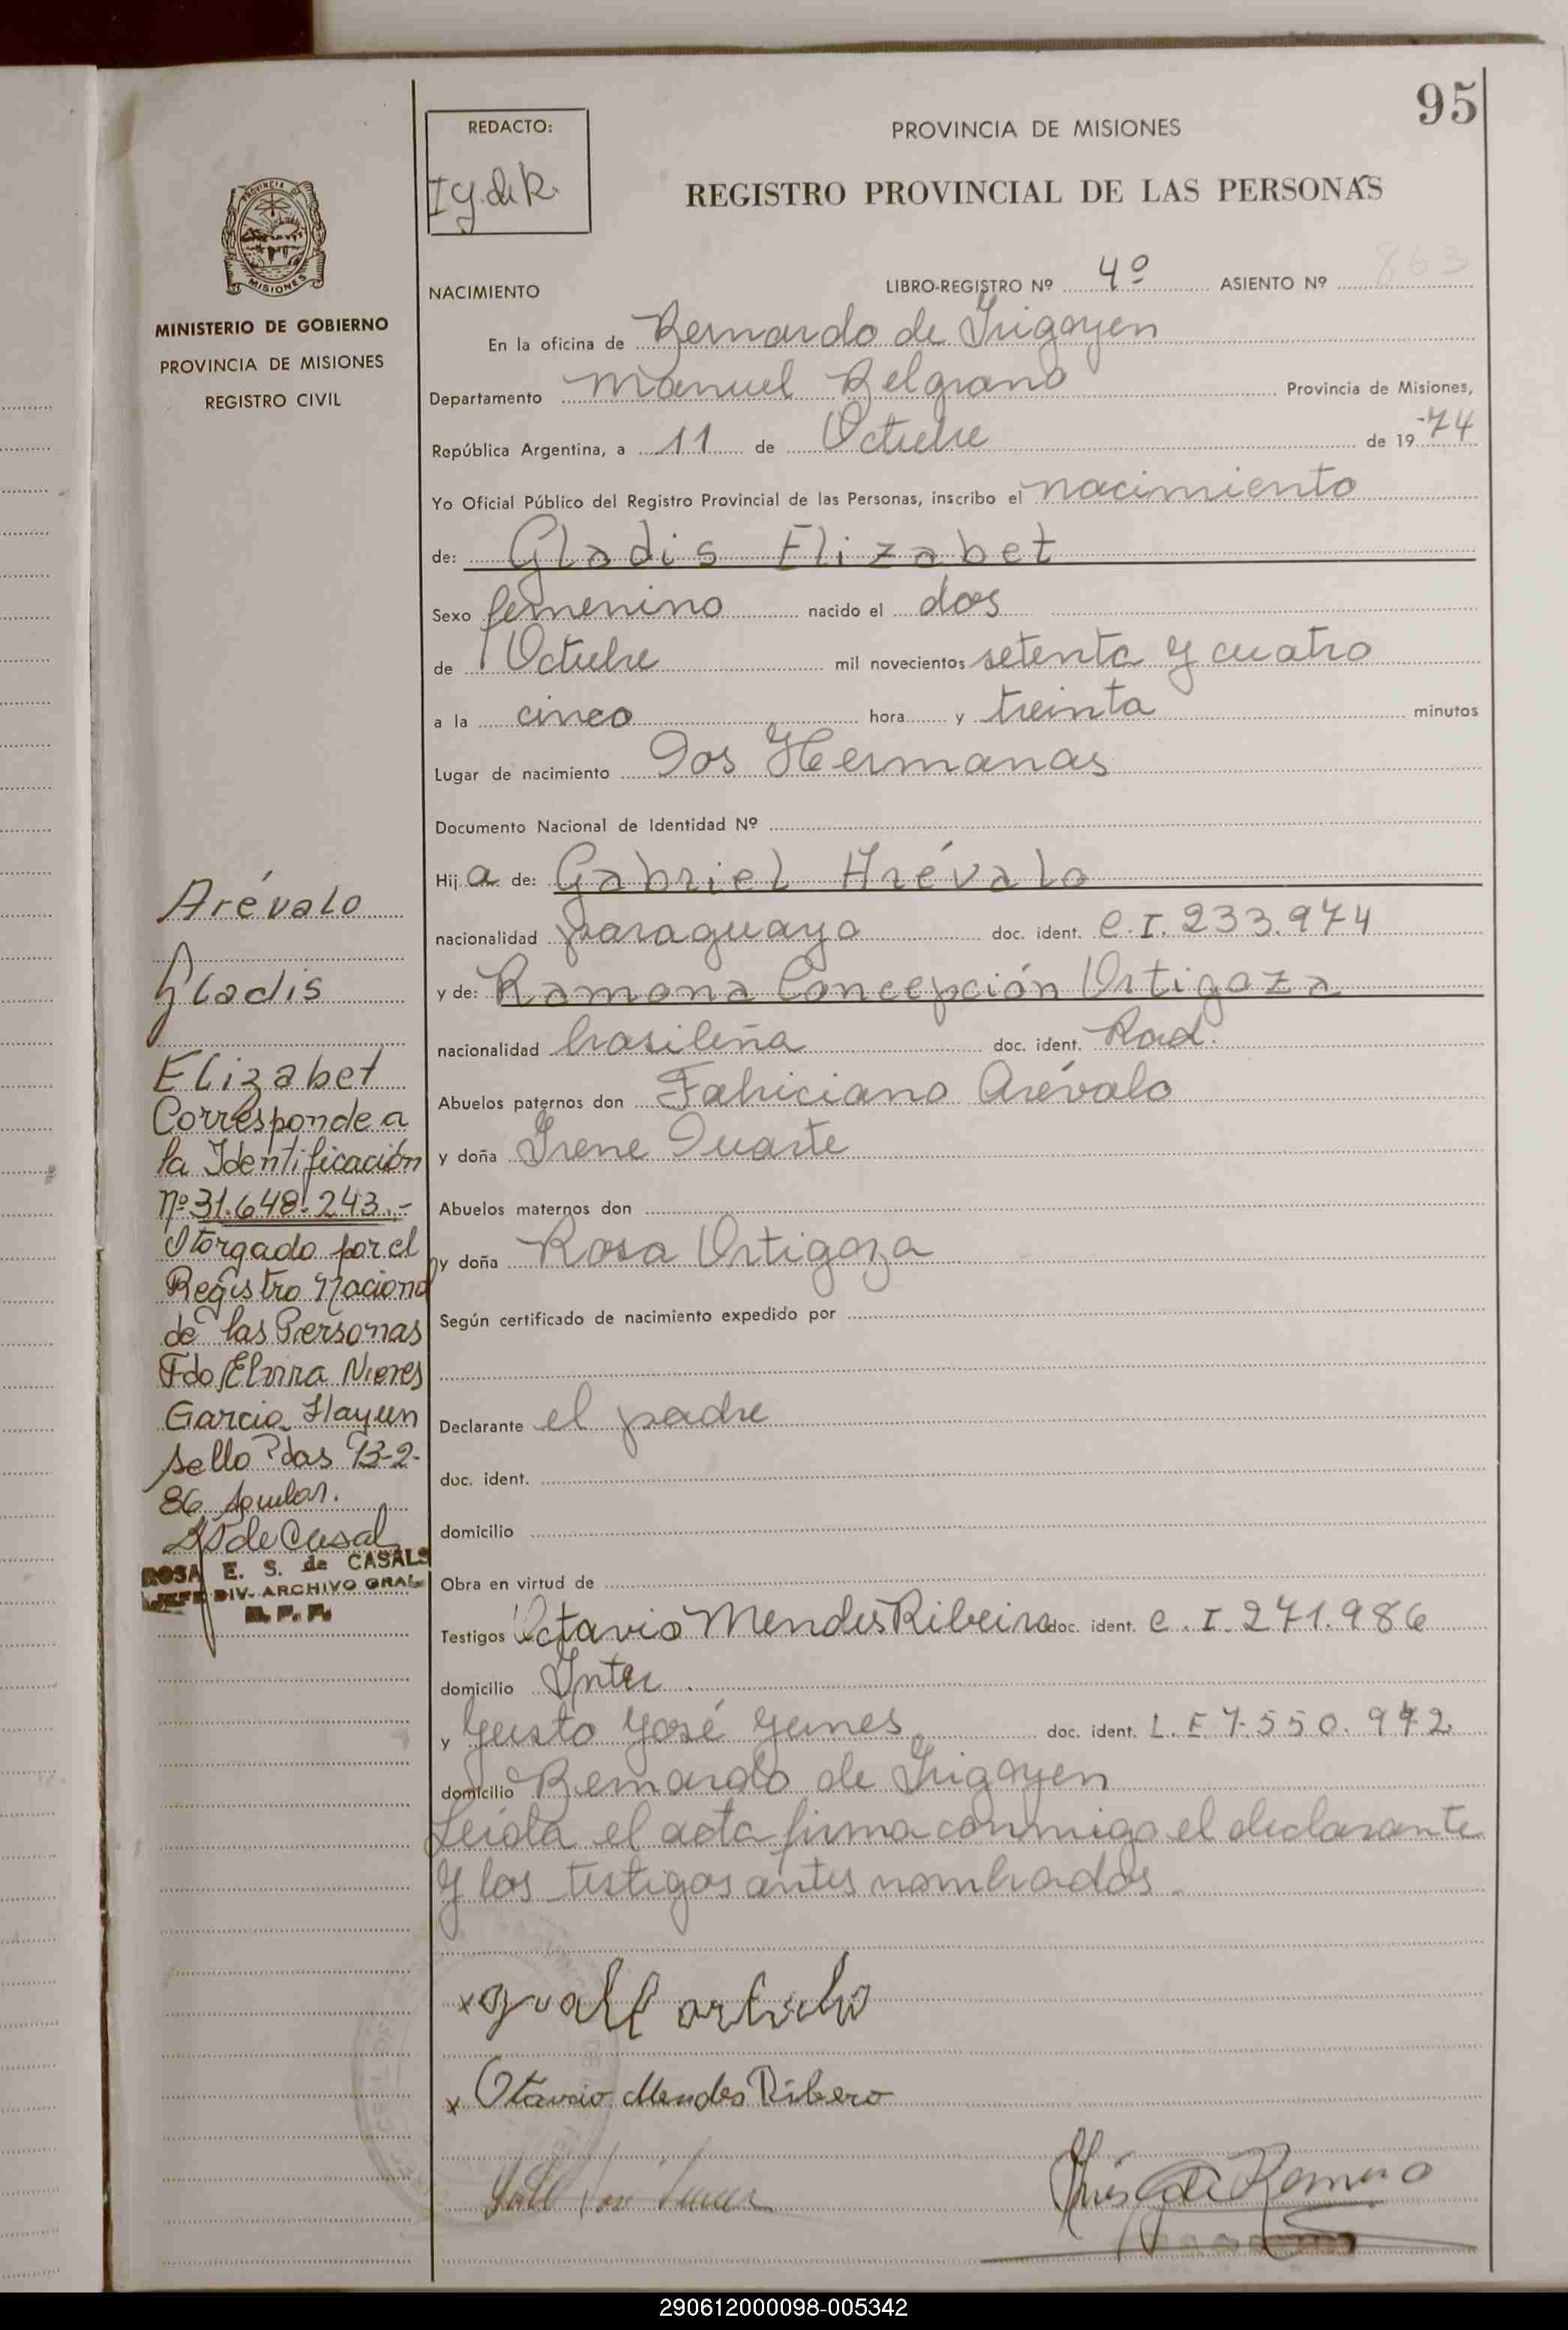 95
REDACTO:
I G. de R.
PROVINCIA DE MISIONES
REGISTRO PROVINCIAL DE LAS PERSONAS
PROVINCIA DE
MISIONES
MINISTERIO DE GOBIERNO
PROVINCIA DE MISIONES
REGISTRO CIVIL
NACIMIENTO LIBRO-REGISTRO Nº 4º ASIENTO Nº 863
En la oficina de Bernardo de Irigoyen
Departamento Manuel Belgrano Provincia de Misiones,
República Argentina, a 11 de Octubre de 19 74
Yo Oficial Público del Registro Provincial de las Personas, inscribo el nacimiento
de: Gladis Elizabet
Sexo femenino nacido el dos
de Octubre mil novecientos setenta y cuatro
a la cinco hora y treinta minutos
Lugar de nacimiento Dos Hermanas
Documento Nacional de Identidad Nº
Hij a de: Gabriel Arévalo
nacionalidad paraguaya doc. ident. C.I. 233.974
y de: Ramona Concepción Ortigoza
nacionalidad brasileña doc. ident. Rad.
Abuelos paternos don Fabriciano Arévalo
y doña Irene Duarte
Abuelos maternos don
y doña Rosa Ortigoza
Según certificado de nacimiento expedido por
Declarante el padre
doc. ident.
domicilio
Obra en virtud de
Testigos Octavio Mendes Ribeiro doc. ident. C.I. 271.986
domicilio Inter.
y Justo José Yunes doc. ident. L.E 7.550.972
domicilio Bernardo de Irigoyen
Leída el acta firma conmigo el declarante
y los testigos antes nombrados.
Arévalo
Gladis
Elizabet
Corresponde a
la Identificación
Nº 31.648.243.-
Otorgado por el
Registro Nacional
de las Personas
Fdo/Elvira Nieves
Garcia
sello Pdas 13-2-
86
de Casal
ROSA E. S. de CASALS
JEFE DIV. ARCHIVO GRAL.
R. P. P.
x
x Otavio Mendes Ribero
de Romero
290612000098-005342